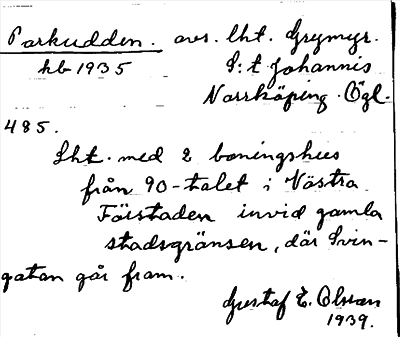 Parkudden. avs. lht. Grymyr.
hb 1935 S:t Johannis
Norrköping. Ögl.
485.
Lht. med 2 boningshus
från 90-talet i Västra
Förstaden invid gamla
stadsgränsen, där Svin-
gatan går fram.
Gustaf E. Olsson
1939.